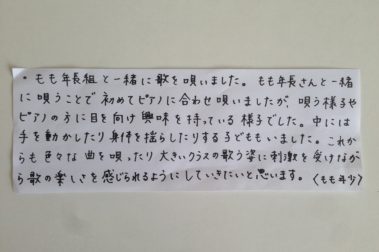 ・もも年長組と一緒に歌を唄いました。もも年長さんと一緒
に唄うことで初めてピアノに合わせ唄いましたが、唄う様子や
ピアノの方に目を向け興味を持っている様子でした。中には
手を動かしたり身体を揺らしたりする子どももいました。これか
らも色々な曲を唄ったり大きいクラスの歌う姿に刺激を受けなが
ら歌の楽しさを感じられるようにしていきたいと思います。〈もも年少〉